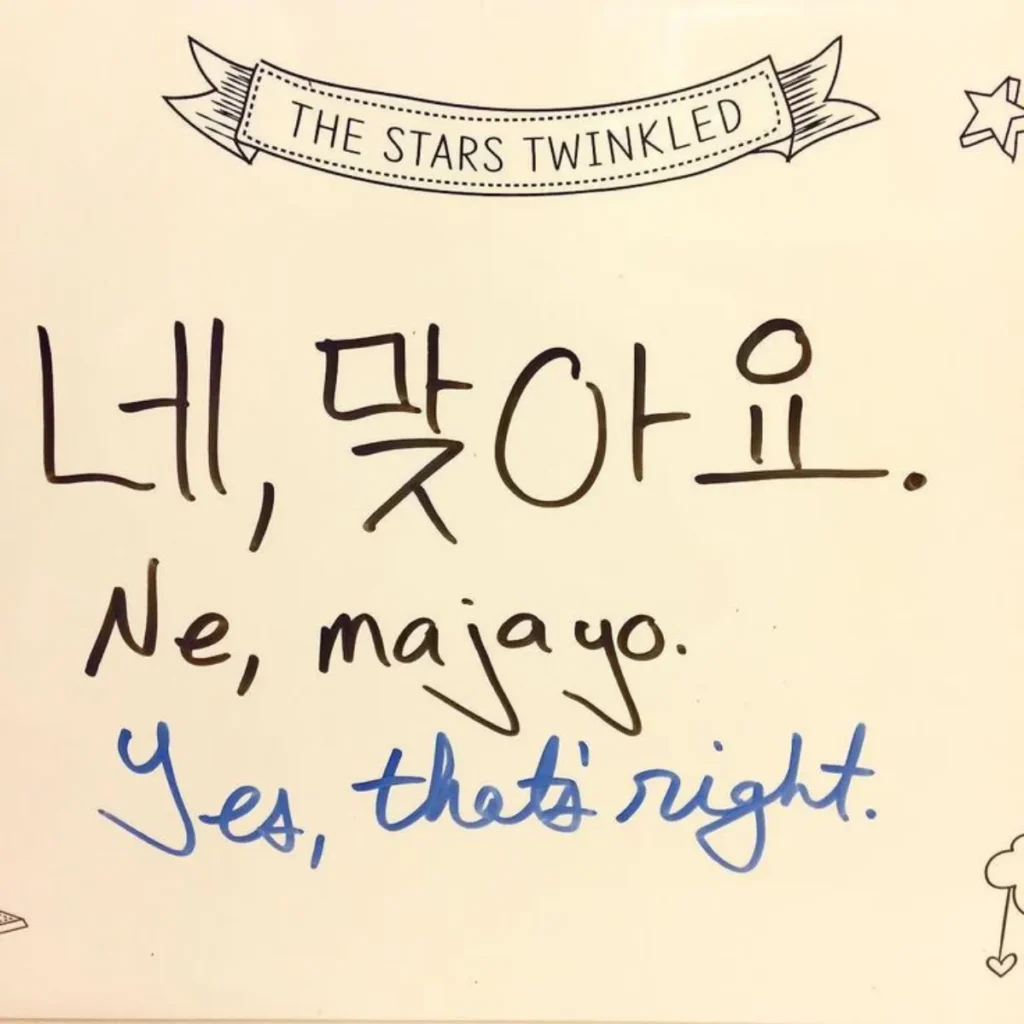 THE STARS TWINKLED
네, 맞아요.
Ne, majayo.
Yes, that's right.